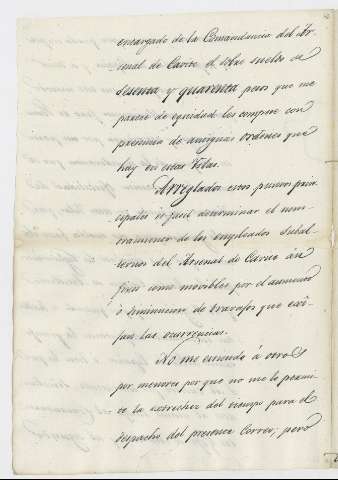 encargado de la Comandancia del Ar-
senal de Cavite el sobre sueldo de
sesenta y quarenta pesos que me
parece de equidad los compare con
presencia de antiguas ordenes que
hay en estas Yslas.
Arreglados estos puestos prin-
cipales es facil determinar el nom-
bramiento de los empleados subal-
ternos del Arsenal de Cavite
fixos como movibles por el aumento
o diminucion de travajos que exi-
jan las ocurrencias.
No me extiendo á otros
por menores por que no me lo permi-
te la estrechez del tiempo para el
despacho del presente Correo; pero